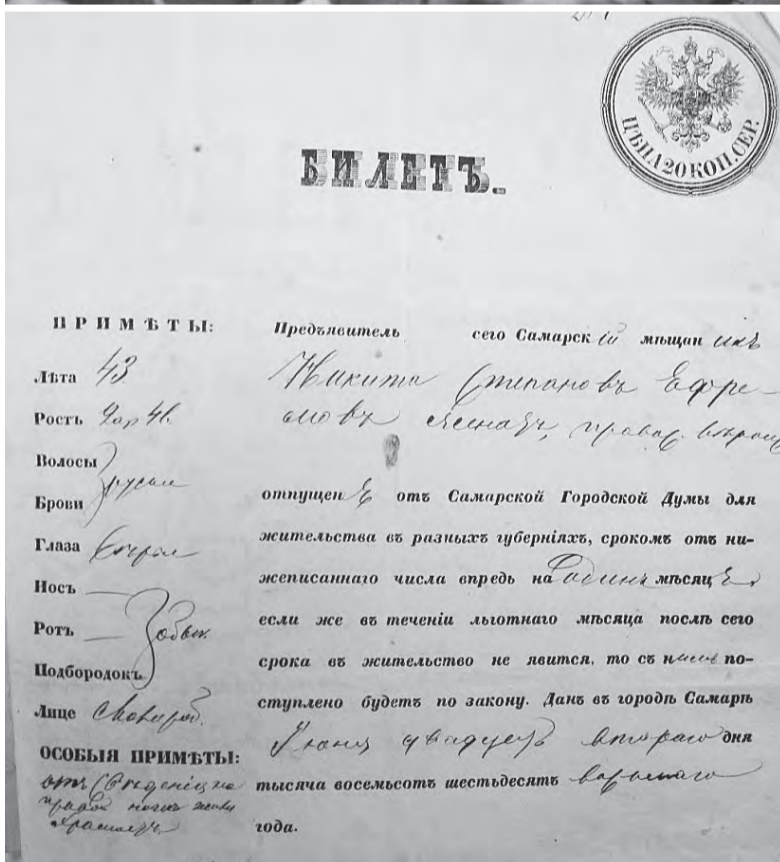 ЦѢНА 20 КОП. СЕР.
БИЛЕТЪ.
ПРИМѢТЫ:
Лѣта 43
Ростъ 2 ар 4 в.
Волосы
русыя
Брови
Глаза серые
Носъ
Ротъ
обык.
Подбородокъ
Лице
ОСОБЫЯ ПРИМѢТЫ:
Предъявитель сего Самарскій мѣщанинъ
Никита Степановъ Ефре-
мовъ женатъ, правос. вѣроисп
отпущенъ отъ Самарской Городской Думы для
жительства въ разныхъ губерніяхъ, срокомъ отъ ни-
жеписаннаго числа впредь на одинъ мѣсяцъ,
если же въ теченіи льготнаго мѣсяца послѣ сего
срока въ жительство не явится, то съ нимъ по-
ступлено будетъ по закону. Данъ въ городѣ Самарѣ
двадцать втораго дня
тысяча восемьсотъ шестьдесятъ
года.